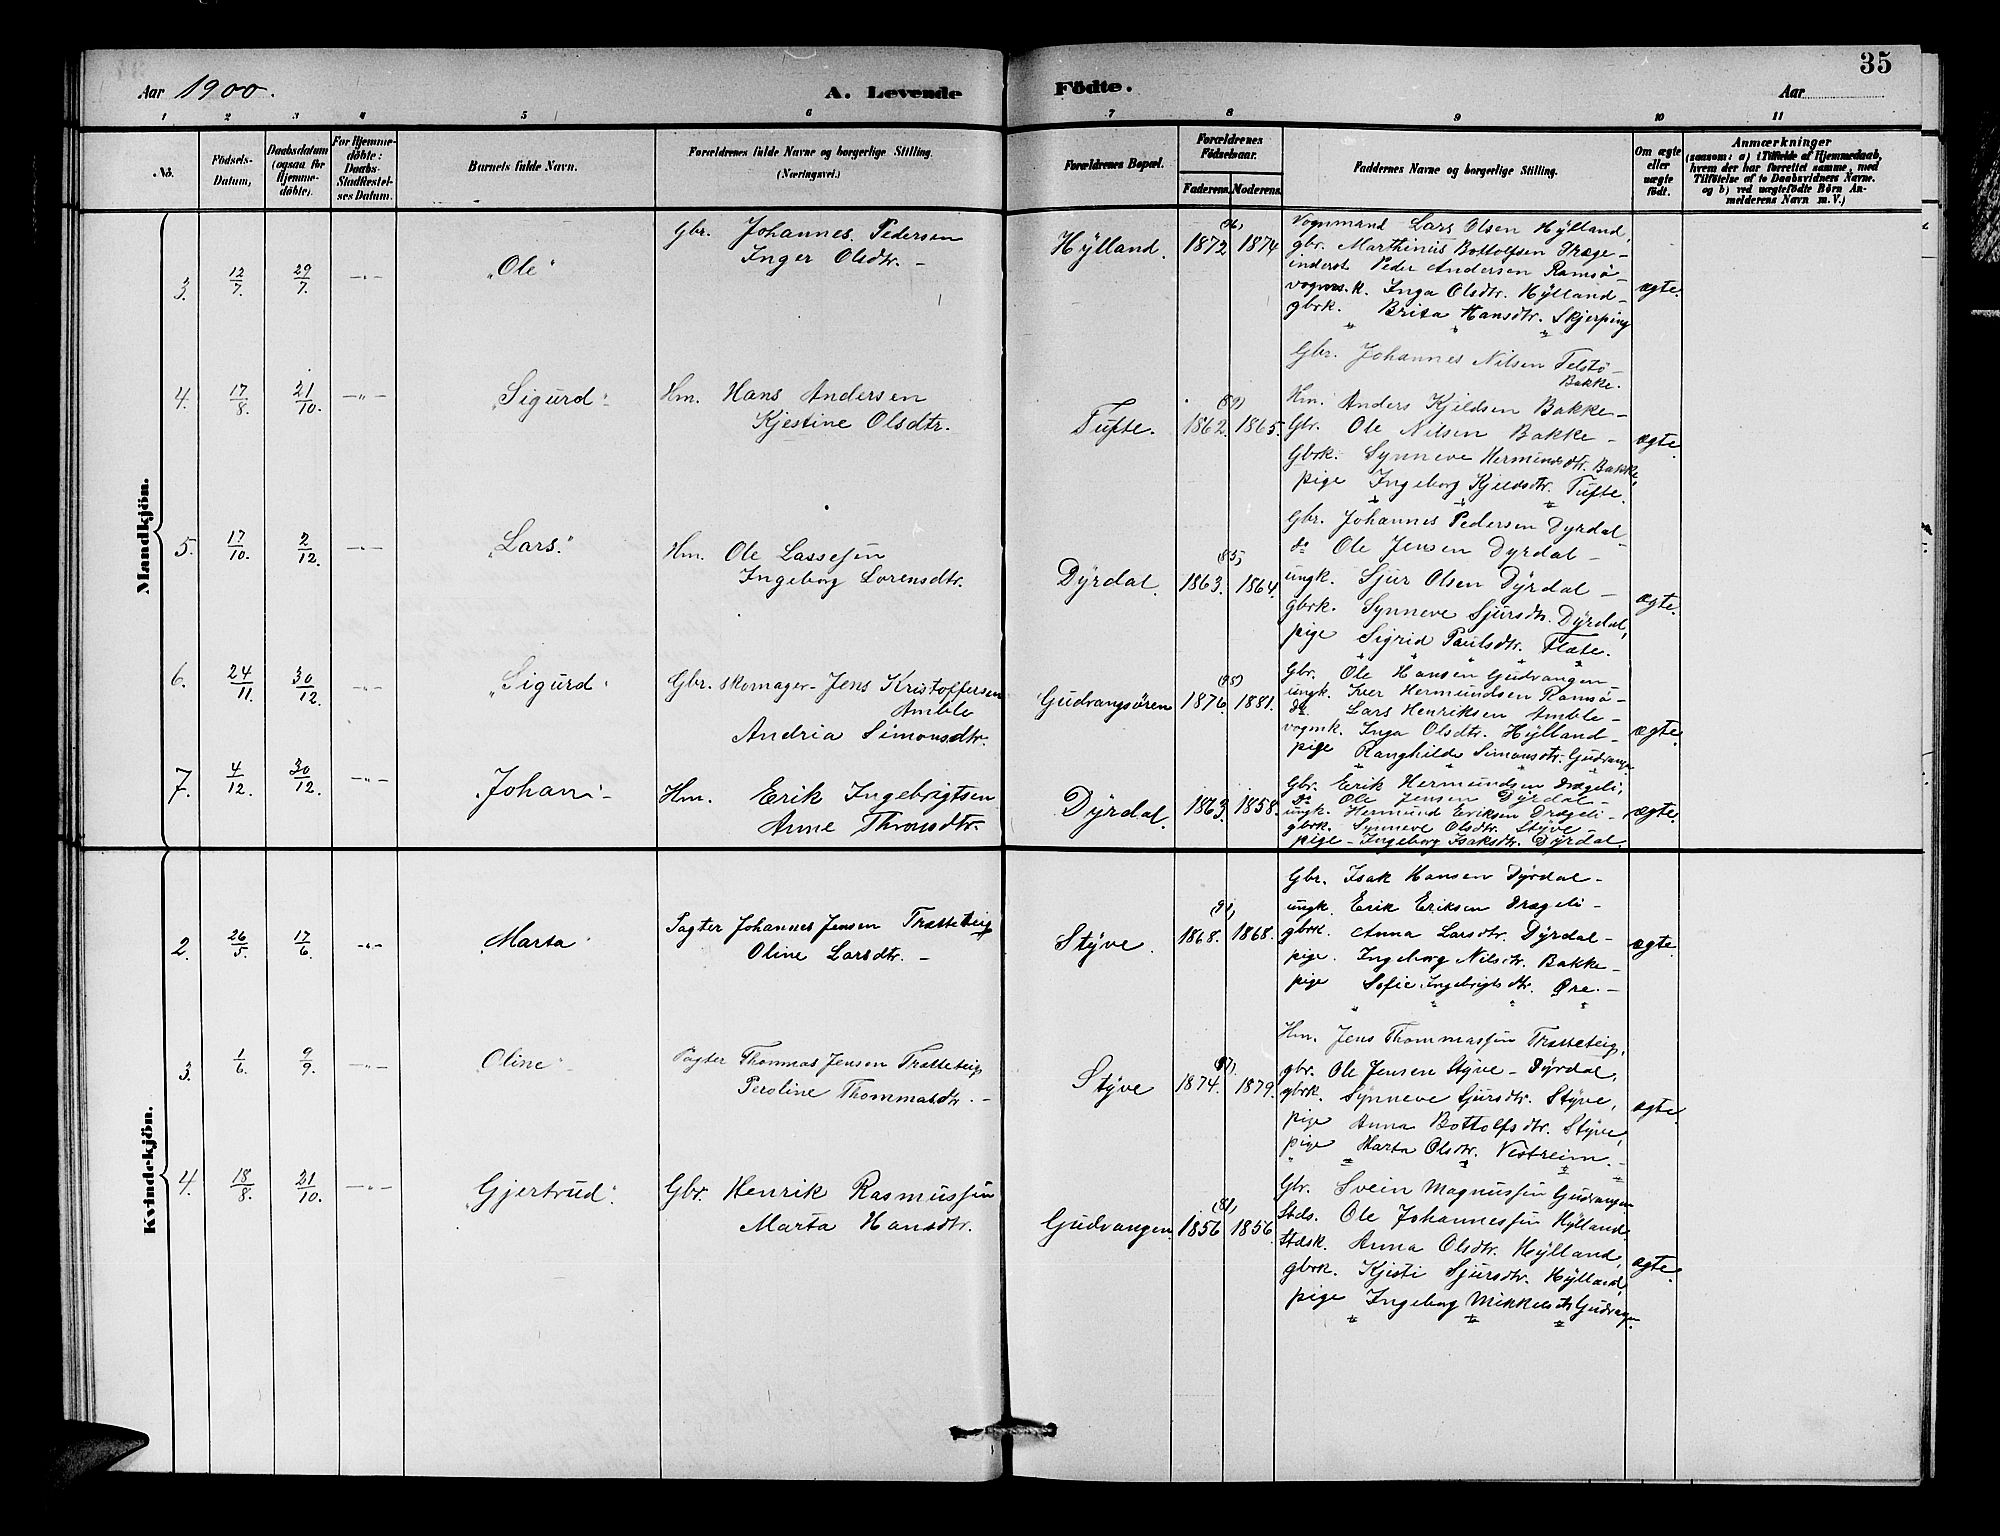 35
Aar 1900.
A. Levende Födte.
Aar
1 2 3 4 5 6 7 8 9 10 11
No.
Födsels-Datum,
Daabsdatum (ogsaa for Hjemme-döbte).
For Hjemme-döbte: Daabs-Stadfæstel-ses Datum.
Barnets fulde Navn.
Forældrenes fulde Navne og borgerlige Stilling. (Næringsvei.)
Forældrenes Bopæl.
Forældrenes Födselsaar.
Faderens. Moderens.
Faddernes Navne og borgerlige Stilling.
Om ægte eller uægte födt.
Anmærkninger
(saasom: a) i Tilfælde af Hjemmedaab, hvem der har forrettet samme, med Tilföielse af to Daabsvidners Navne. og b) ved uægtefödte Börn An-melderens Navn m. V.)
Mandkjön.
3. 12/7 29/7 -"- "Ole" Gbr. Johannes Pedersen
Inger Olsdtr. -
Hÿlland. 1872 (96) 1874
Vognmand Lars Olsen Hÿlland,
gbr. Marthinus Bottolfsen Dræge-
inderst Peder Andersen Ramsö-
vognm.k. Inga Olsdtr. Hÿlland-
gbrk. Brita Hansdtr. Skjerping
ægte.
4. 17/8 21/10. -"- "Sigurd" Hm. Hans Andersen
Kjestine Olsdtr.
Tufte. 1862. 1865.
Gbr. Johannes Nilsen Telstö-
Bakke.
Hm. Anders Kjeldsen Bakke-
Gbr. Ole Nilsen Bakke -
Gbrk. Synneve Hermundsdtr. Bakke,
pige Ingeborg Kjeldsdtr. Tufte.
ægte.
5. 17/10. 2/12. -"- "Lars." Hm. Ole Lassesen
Ingeborg Lorensdtr.
Dÿrdal. 1863. (85) 1864.
Gbr. Johannes Pedersen Dyrdal-
do Ole Jensen Dyrdal -
ungk. Sjur Olsen Dÿrdal -
gbrk. Synneve Sjursdtr. Dÿrdal,
pige Sigrid Paulsdtr. Flate.
ægte.
6. 24/11 30/12 -"- "Sigurd" Gbr. skomager- Jens Kristoffersen
Amble
Andria Simonsdtr.
Gudvangsören 1876. (98) 1881.
Gbr. Ole Hansen Gudvangen-
ungk. Iver Hermundsen Ramsö-
do. Lars Henriksen Amble-
vognk. Inga Olsdtr. Hÿlland-
pige Ranghilde Simonsdtr. Gudvangen
ægte.
7. 4/12. 30/12. -"- "Johan" Hm. Erik Ingebrigtsen
Anne Thronsdtr.
Dÿrdal. 1863. 1858.
Gbr. Erik Hermundsen Drægeli,
do Ole Jensen Dÿrdal -
ungk. Hermund Eriksen Drægeli-
gbrk. Synneve Olsdtr. Stÿve
pige - Ingeborg Isaksdtr. Dÿrdal.
ægte.
Kvindekjön.
2. 26/5. 17/6. -"- "Marta" Pagter Johannes Jensen Trætteteig
Oline Larsdtr. -
Stÿve. 1868. (91) 1868.
Gbr. Isak Hansen Dÿrdal-
ungk. Erik Eriksen Drægeli-
gbrk. Anna Larsdtr. Dÿrdal-
pige. Ingeborg Nilsdtr. Bakke-
pige Sofie Ingebrigtsdtr. Øre. -
ægte.
3. 1/6. 9/9. -"- "Oline" Pagter Thommas Jensen Trætteteig
Peroline Thommasdtr. -
Stÿve 1874. (97) 1879.
Hm. Jens Thommassen Trætteteig,
gbr. Ole Jensen Stÿve- Dÿrdal,
gbrk. Sÿnneve Sjursdtr. Stÿve,
pige Anna Bottolfsdtr. Stÿve,
pige Marta Olsdtr. Vestreim. -
ægte.
4. 18/8. 21/10. -"- "Gjertrud". Gbr. Henrik Rasmussen
Marta Hansdtr.
Gudvangen. 1856 (81) 1856.
Gbr. Svein Magnussen Gudvangen
Stds. Ole Johannessen Hÿlland
Stdsk. Anna Olsdtr. Hÿlland,
gbrk. Kjesti Sjursdtr. Hÿlland,
pige Ingeborg Mikkelsdtr Gudvangen.
ægte.